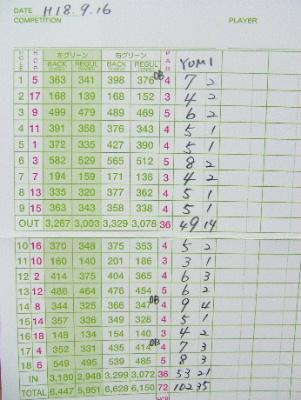 DATE H18.9.16
COMPETITION PLAYER
左グリーン 右グリーン
HOLE HCP BACK REGUL BACK REGUL PAR YUMI
1 5 363 341 398 376 OB 4 7 2
2 17 168 139 168 152 3 4 2
3 9 499 479 489 469 5 6 2
4 11 391 358 376 343 4 5 1
5 1 372 335 427 390 4 5 1
6 3 582 529 565 512 5 8 2
7 7 194 159 171 136 3 4 2
8 13 335 320 377 362 4 5 1
9 15 363 343 358 338 4 5 1
OUT 3,267 3,003 3,329 3,078 36 49 14
10 16 370 348 375 353 4 5 2
11 10 160 140 201 186 3 3 1
12 2 414 375 404 365 4 6 3
13 12 488 464 476 454 5 6 2
14 8 344 325 366 347 OB 4 9 4
15 14 357 336 349 328 4 5 1
16 18 148 134 154 140 3 4 2
17 4 352 331 435 414 OB 4 7 3
18 6 549 495 539 485 5 8 3
IN 3,180 2,948 3,299 3,072 36 53 21
TOTAL 6,447 5,951 6,628 6,150 72 102 35